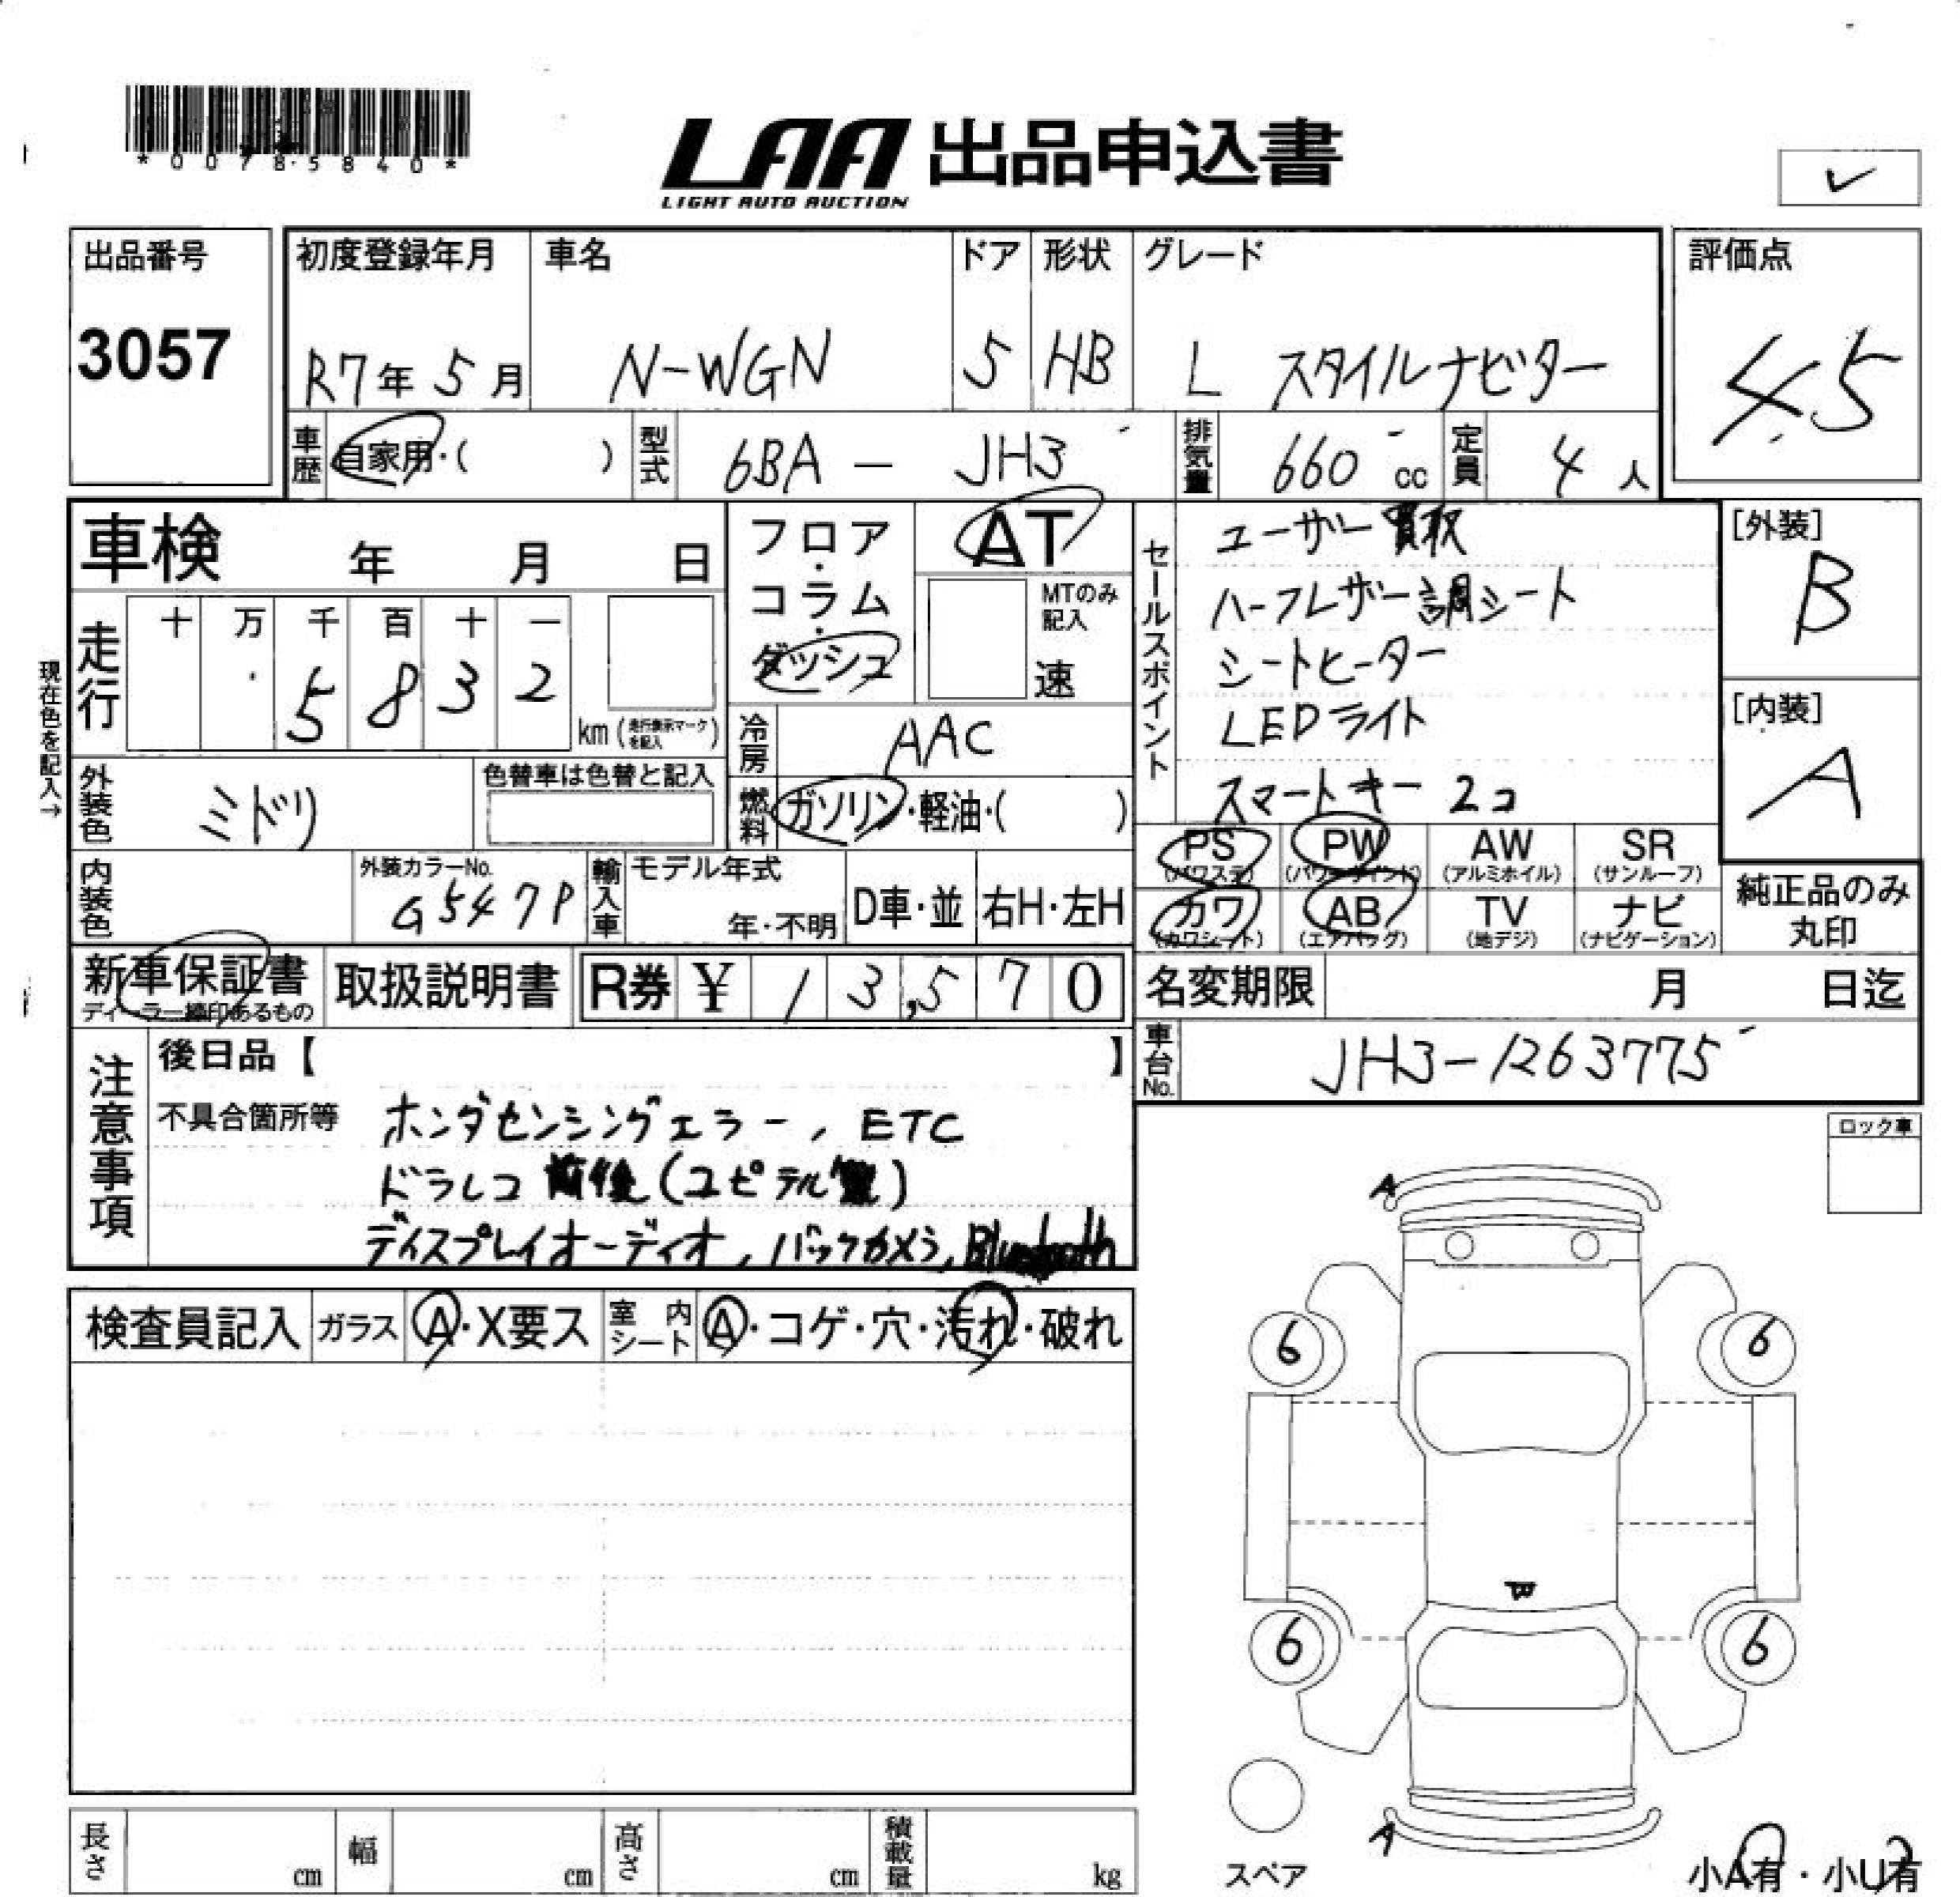 *00785840*
LAA 出品申込書
LIGHT AUTO AUCTION
✓
出品番号
3057
初度登録年月
R7年 5月
車名
N-WGN
ドア
5
形状
HB
グレード
L スタイルナビター
評価点
4.5
車歴
自家用・( )
型式
6BA - JH3
排気量
660 cc
定員
4 人
車検 年 月 日
フロア・コラム・ダッシュ
AT
MTのみ記入
速
走行
十 万 千 百 十 一
5 8 3 2
km (走行表示マークを記入)
現在色を記入→
冷房
AAC
外装色
ミドリ
色替車は色替と記入
燃料
ガソリン・軽油・( )
セールスポイント
ユーザー買取
ハーフレザー調シート
シートヒーター
LEDライト
スマートキー 2コ
[外装]
B
[内装]
A
PS
(パワステ)
PW
(パワーウィンド)
AW
(アルミホイル)
SR
(サンルーフ)
カワ
(カワシート)
AB
(エアバッグ)
TV
(地デジ)
ナビ
(ナビゲーション)
純正品のみ
丸印
内装色
外装カラーNo.
G547P
輸入車
モデル年式
年・不明
D車・並
右H・左H
新車保証書
ディーラー捺印あるもの
取扱説明書
R券 ¥ 13,570
名変期限 月 日迄
車台No.
JH3-1263775
注意事項
後日品【 】
不具合箇所等
ホンダセンシングエラー, ETC
ドラレコ 前後(ユピテル製)
ディスプレイオーディオ, バックカメラ, Bluetooth
ロック車
検査員記入
ガラス
A・X要ス
室内シート
A・コゲ・穴・汚れ・破れ
A
6 6
6 6
A
スペア
小A有・小U有
長さ cm
幅 cm
高さ cm
積載量 kg